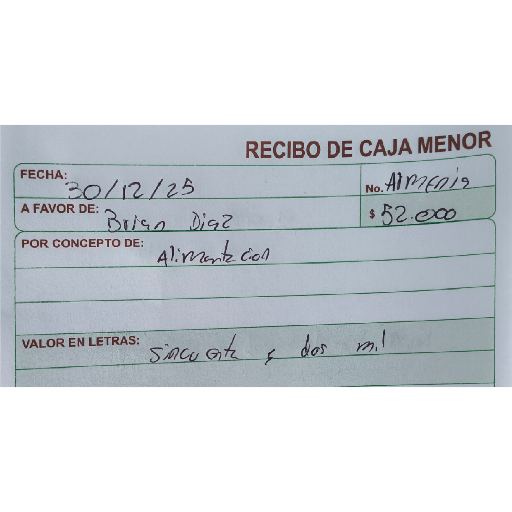 RECIBO DE CAJA MENOR
FECHA: 30/12/25
No. Armenia
A FAVOR DE: Brian Diaz
$ 52.000
POR CONCEPTO DE: Alimentacion
VALOR EN LETRAS: Sincuenta y dos mil